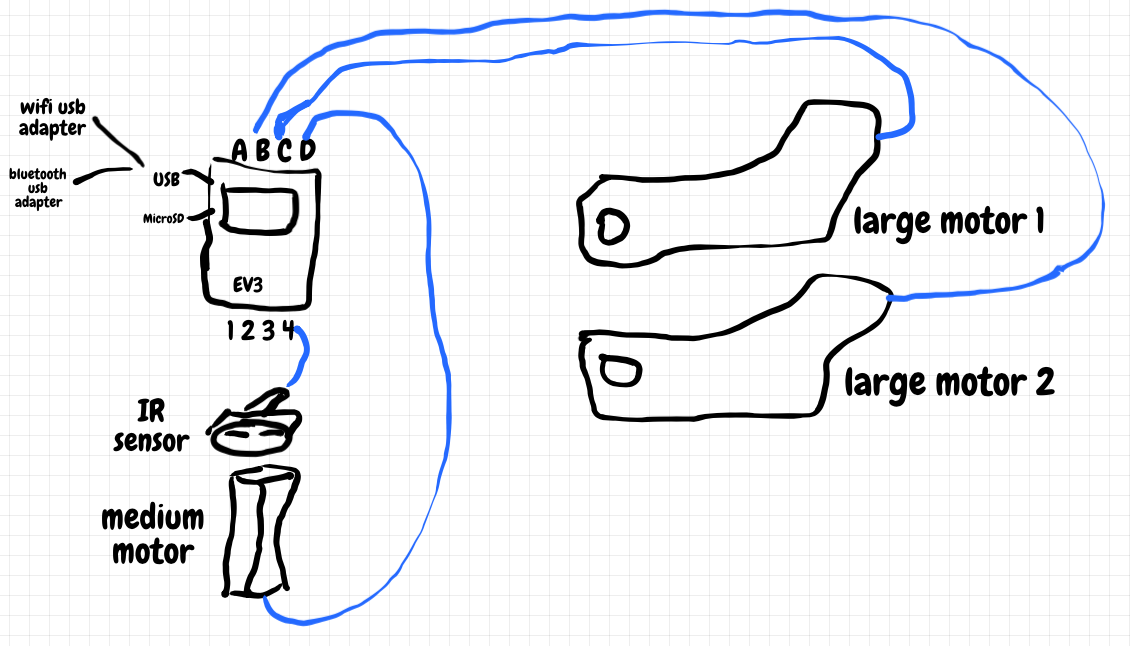 wifi usb
adapter
bluetooth
usb
adapter
A B C D
USB
MicroSD
EV3
1 2 3 4
IR
sensor
medium
motor
large motor 1
large motor 2